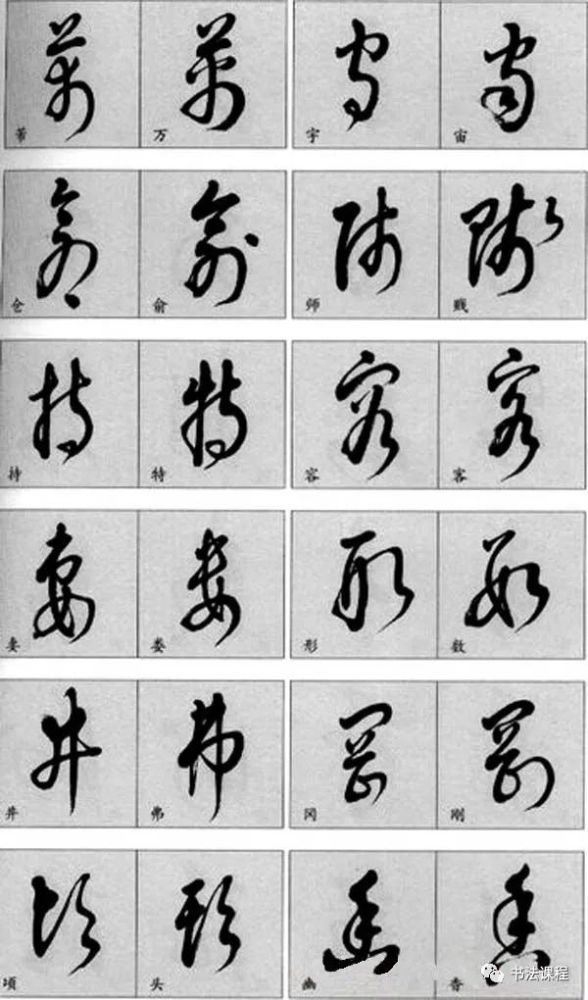 万 宇 宙
仓 俞 师 贱
持 特 容 客
妻 娄 形 数
井 弗 冈 刚
項 头 幽 香
书法课程